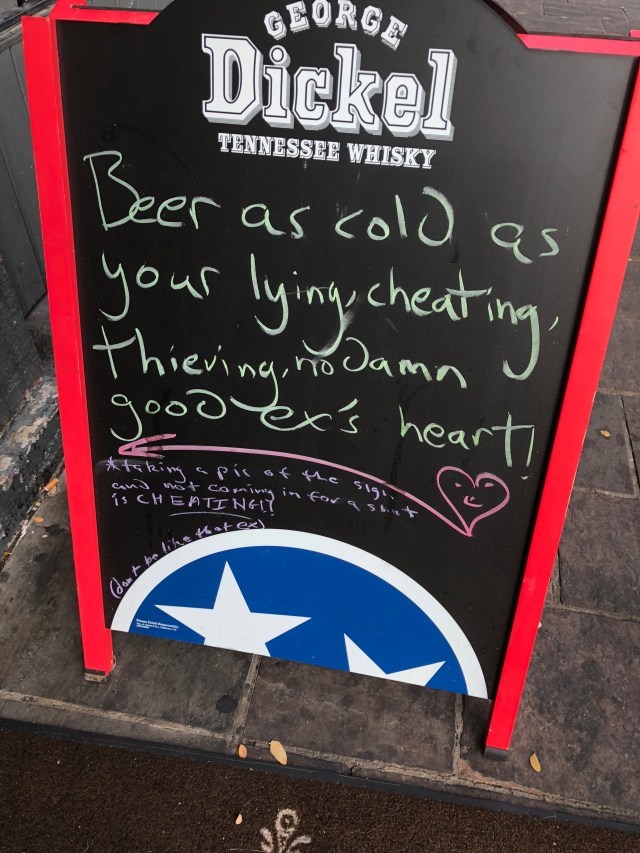 GEORGE
Dickel
TENNESSEE WHISKY
Beer as cold as
your lying, cheating,
thieving, no damn
good ex's heart!
*taking a pic of the sign
and not coming in for a shot
is CHEATING!!
(don't be like that ex)